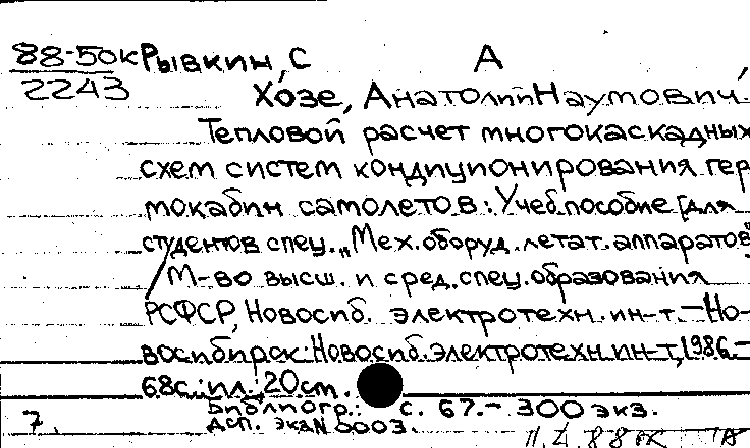 88-50к Рывкин, С А
2243
Хозе, Анатолий Наумович.
Тепловой расчет многокаскадных
схем систем кондиционирования гер
мокабин самолетов: Учеб. пособие [для
студентов спец. „Мех. оборуд. летат. аппаратов"
/ М-во высш. и сред. спец. образования
РСФСР, Новосиб. электротехн. ин-т. — Но-
восибирск: Новосиб. электротехн. ин-т, 1986. —
68 с.: ил.; 20 см.
Библиогр.: с. 67. — 300 экз.
7. Асп. экз N 0003.